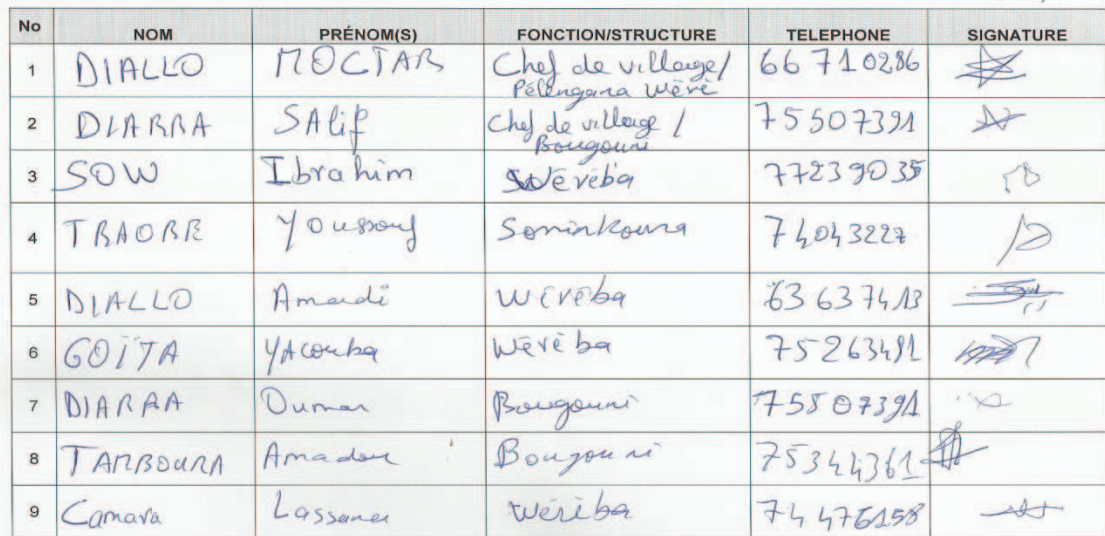 No NOM PRÉNOM(S) FONCTION/STRUCTURE TELEPHONE SIGNATURE
1 DIALLO MOCTAR Chef de village/ 66 710286
Pélengana Wèrè
2 DIARRA SAlif Chef de village / 75507391
Bougouni
3 SOW Ibrahim Wéréba 77239035
4 TRAORE Youssouf Soninkoura 74043227
5 DIALLO Amadi Wéréba 63637413
6 GOÏTA YAcouba Wèrèba 75263491
7 DIARRA Oumar Bougouni 75807391
8 TAMBOURA Amadou Bougouni 75344361
9 Camara Lassana Wéréba 74476158